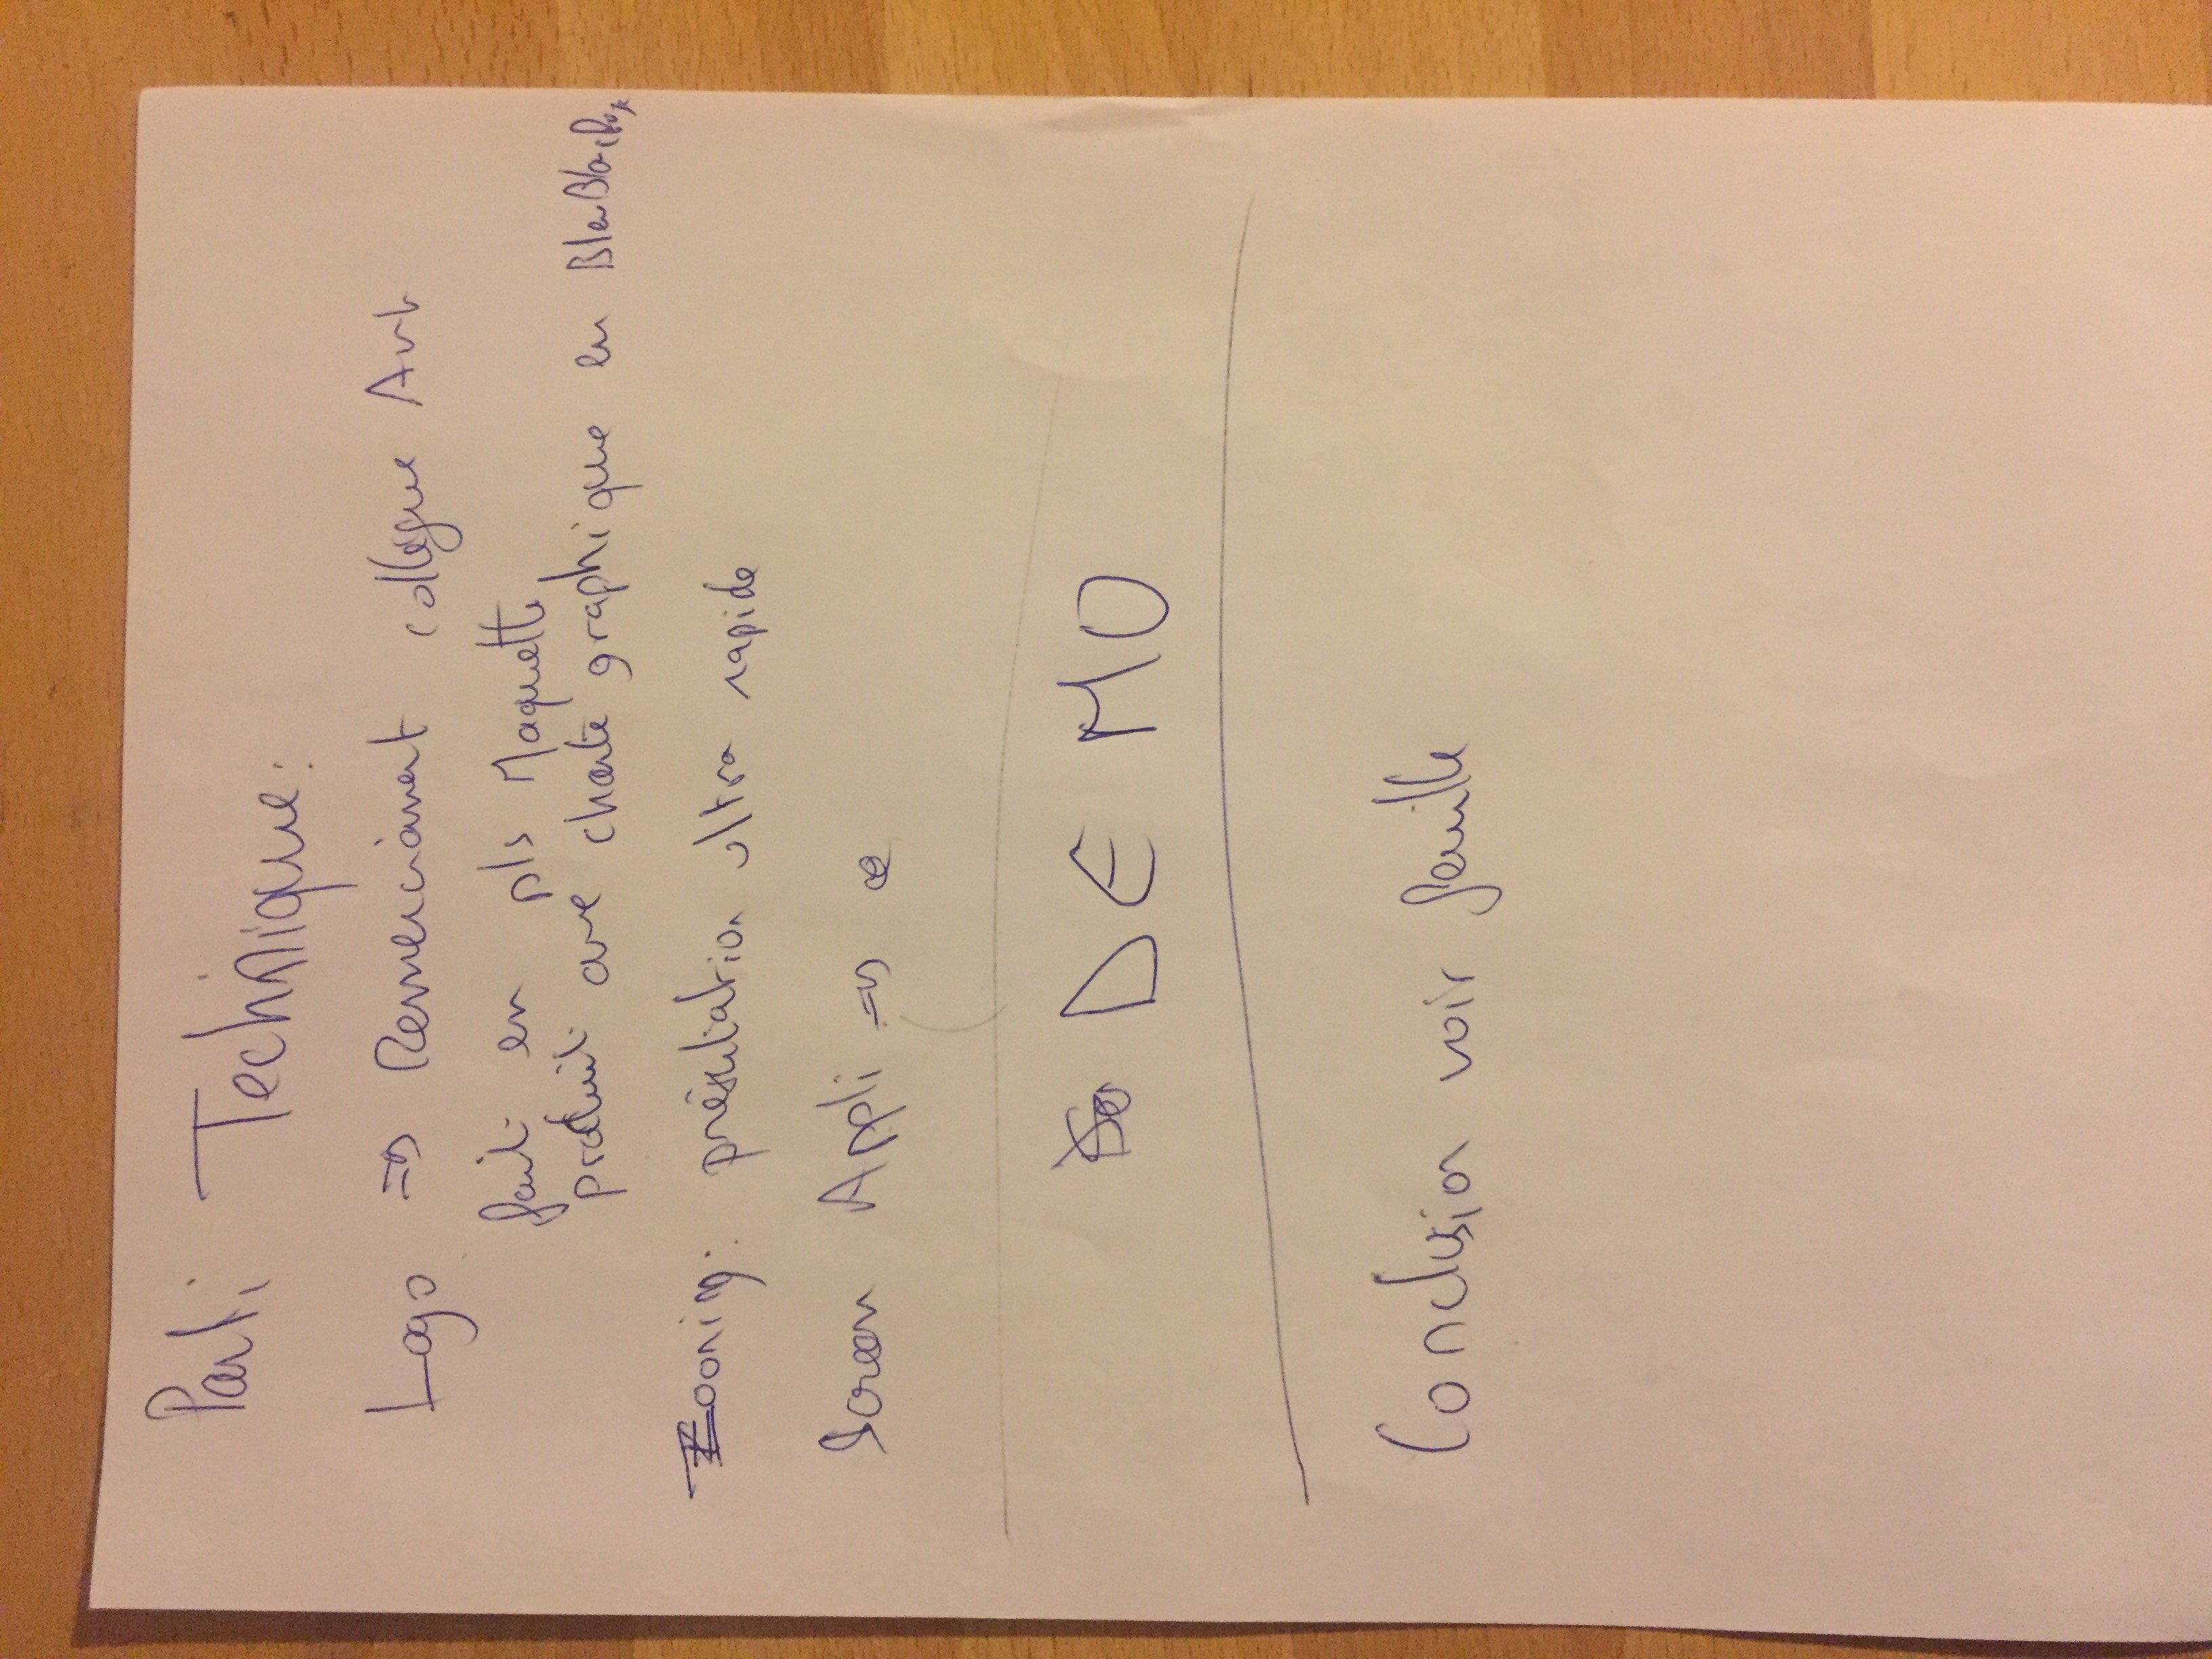 Parti Technique:
Logo => Remerciement collègue Art
fait en pls Maquette
produit ave charte graphique en Bleu Blanc
Zooning: présentation ultra rapide
Screen Appli =>
DEMO
Conclusion voir feuille